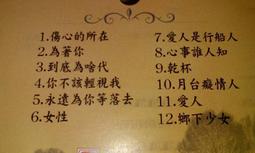 1.傷心的所在
2.為著你
3.到底為啥代
4.你不該輕視我
5.永遠為你等落去
6.女性
7.愛人是行船人
8.心事誰人知
9.乾杯
10.月台癡情人
11.愛人
12.鄉下少女